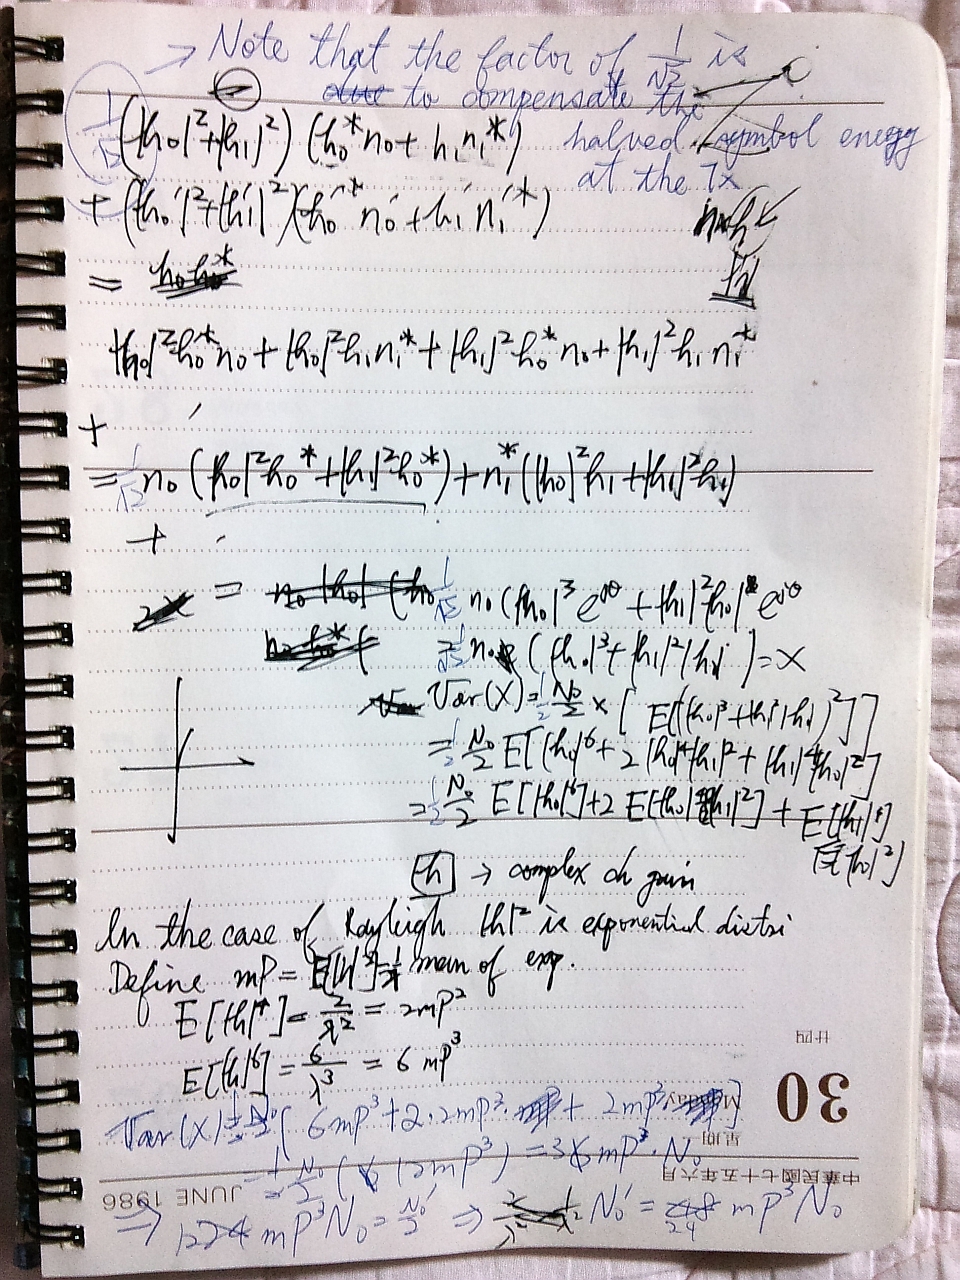 → Note that the factor of 1/√2 is
to compensate the
halved symbol energy
at the Tx
1/√2 (|h₀|²+|h₁|²)(h₀*n₀+h₁n₁*)
+ (|h₀'|²+|h₁'|²)(h₀'*n₀'+h₁'n₁'*)
=
|h₀|²h₀*n₀+|h₀|²h₁n₁*+|h₁|²h₀*n₀+|h₁|²h₁n₁*
+ '
= 1/√2 n₀(|h₀|²h₀*+|h₁|²h₀*)+n₁*(|h₀|²h₁+|h₁|²h₁)
+ '
= 1/√2 n₀(|h₀|³e^jθ+|h₁|²|h₀|e^jθ
= 1/√2 n₀(|h₀|³+|h₁|²|h₀|)=X
Var(X)=1/2 N₀/2 ×[E[(|h₀|³+|h₁|²|h₀|)²]]
=1/2 N₀/2 E[|h₀|⁶+2|h₀|⁴|h₁|²+|h₁|⁴|h₀|²]
=1/2 N₀/2 E[|h₀|⁶]+2E[|h₀|⁴|h₁|²]+E[|h₁|⁴]
E[|h₀|²]
h → complex ch gain
In the case of Rayleigh |h|² is exponential distri
Define mP=E[|h|²]=1/λ mean of exp.
E[|h|⁴]=2/λ²=2mP²
E[|h|⁶]=6/λ³=6mP³
Var(X)=1/2 N₀/2[6mP³+2·2mP³+2mP³]
=1/2 N₀/2(12mP³)=3mP³·N₀
⇒ mP³N₀=N₀'/2 ⇒ N₀'= mP³N₀
30
Monday
廿四
星期一
中華民國七十五年六月
JUNE 1986